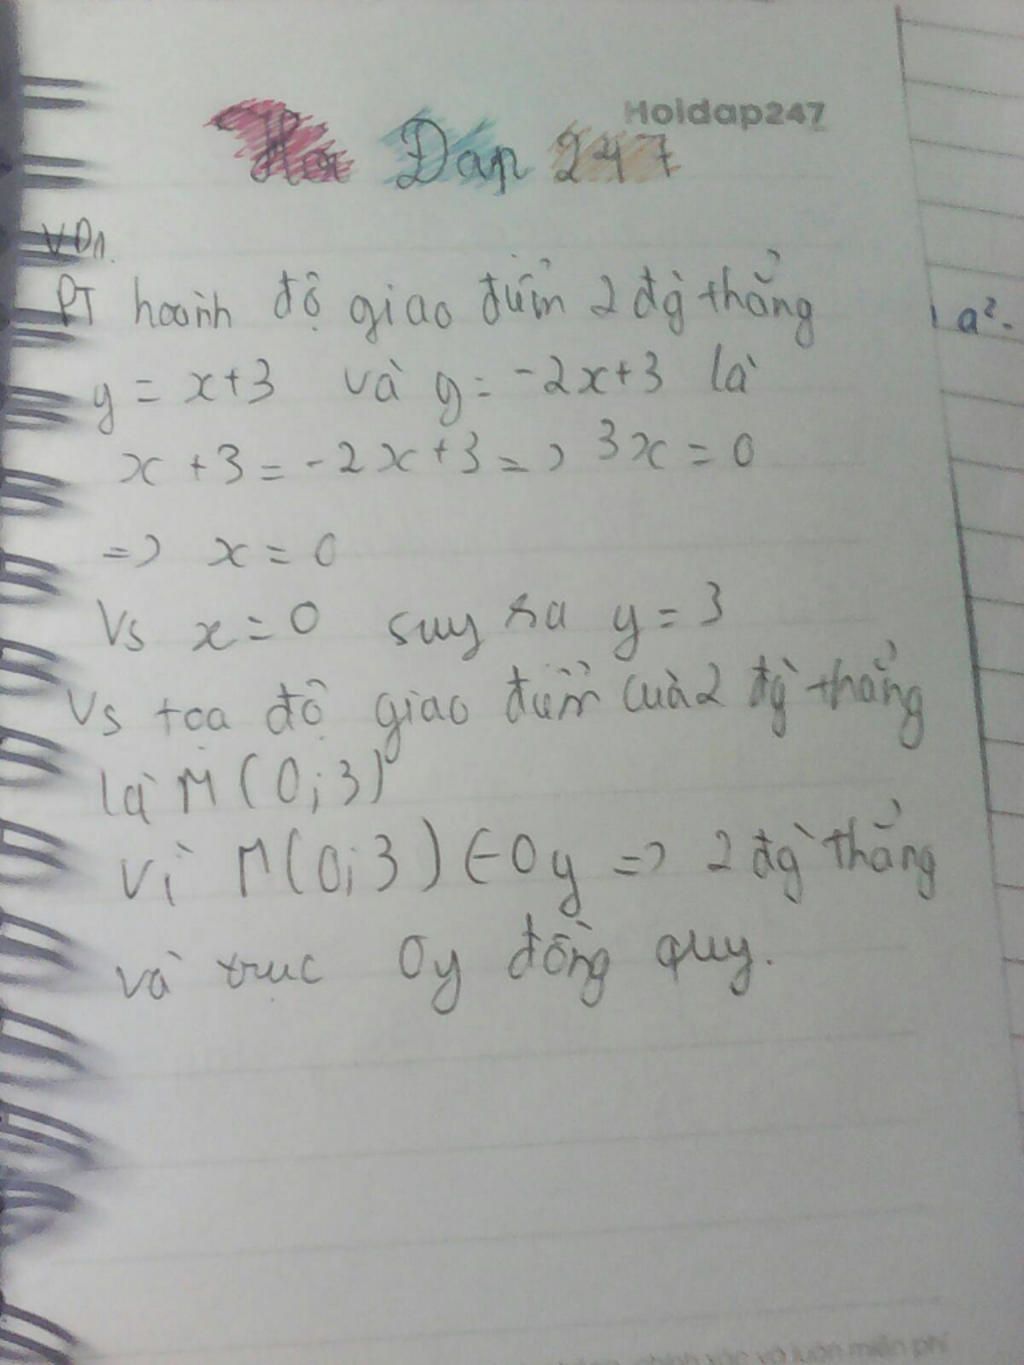 Holdap247
Hỏi Đáp 247
VD1.
PT hoành độ giao điểm 2 đg̀ thẳng
y = x+3 và y = -2x+3 là
x + 3 = -2x + 3 => 3x = 0
=> x = 0
Vs x = 0 suy ra y = 3
Vs tọa độ giao điểm của 2 đg̀ thẳng
là M (0; 3)
Vì M(0; 3) ∈ Oy => 2 đg̀ thẳng
và trục Oy đồng quy.
a².
và luôn miễn phí